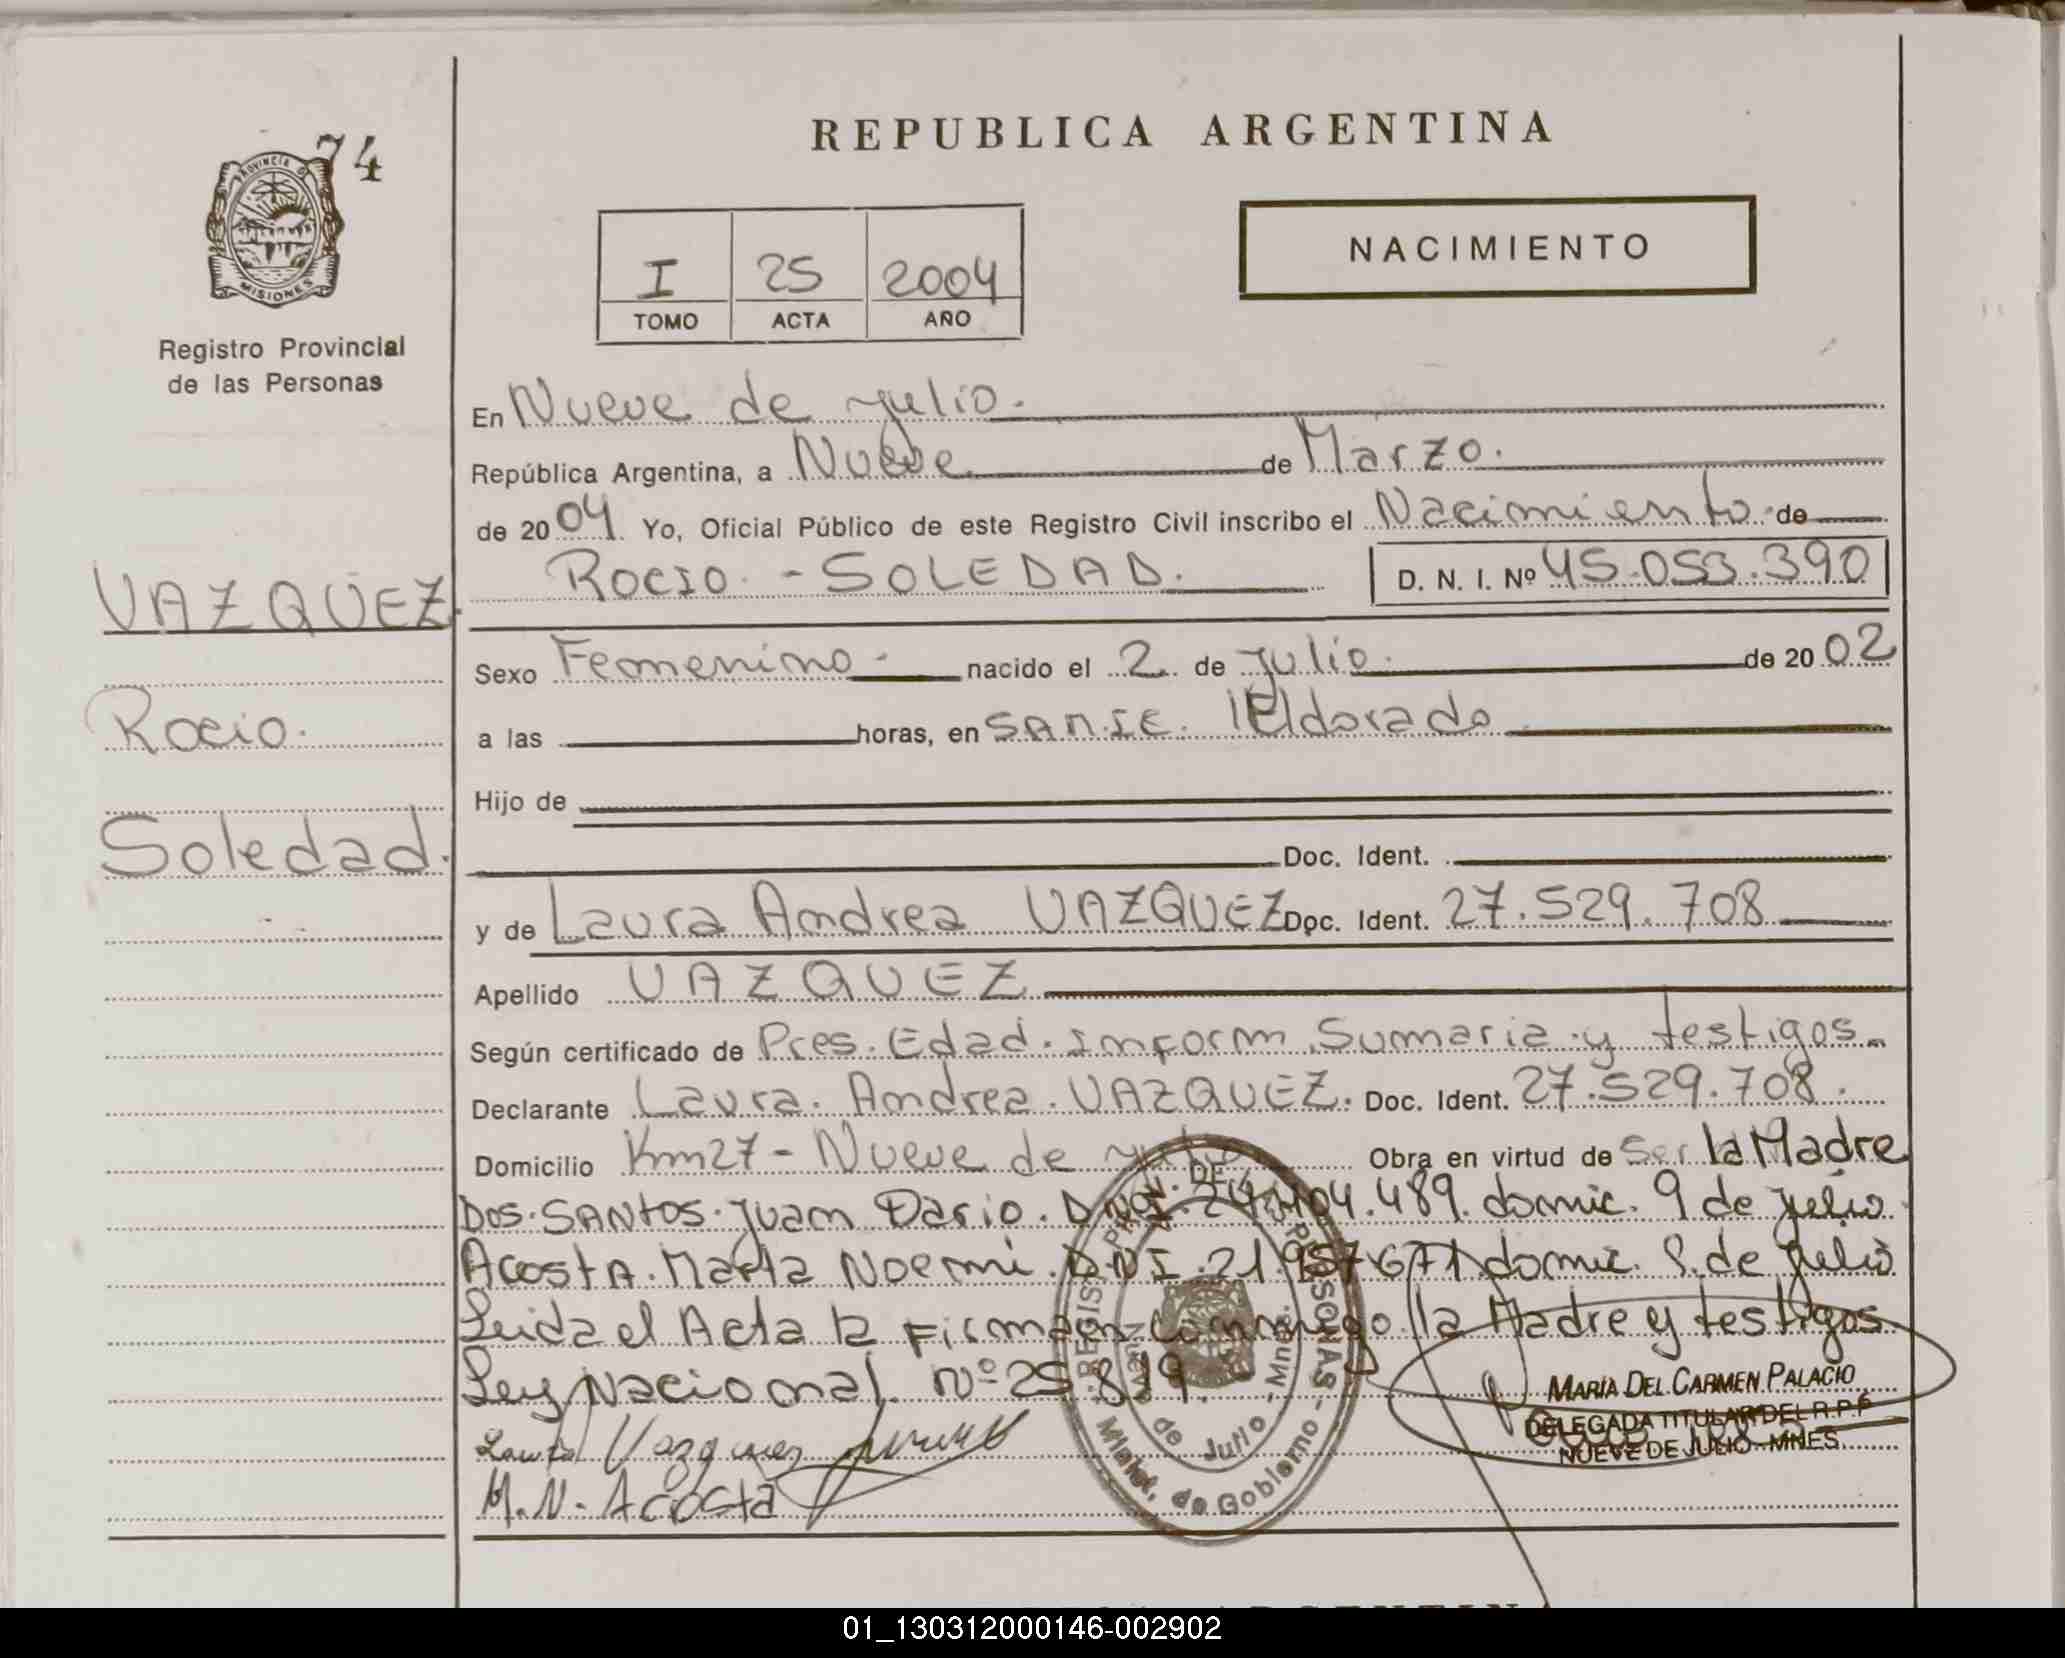 74
PROVINCIA DE
MISIONES
Registro Provincial
de las Personas
VAZQUEZ.
Rocio.
Soledad.
REPUBLICA ARGENTINA
I 25 2004
TOMO ACTA AÑO
NACIMIENTO
En Nueve de julio.
República Argentina, a Nueve de Marzo.
de 2004 Yo, Oficial Público de este Registro Civil inscribo el Nacimiento de
ROCIO - SOLEDAD. D. N. I. Nº 45.053.390
Sexo Femenino - nacido el 2 de julio. de 2002
a las horas, en SAMIC. Eldorado
Hijo de
Doc. Ident.
y de Laura Andrea VAZQUEZ Doc. Ident. 27.529.708
Apellido VAZQUEZ
Según certificado de Pres. Edad. Inform. Sumaria y testigos
Declarante Laura. Andrea. VAZQUEZ. Doc. Ident. 27.529.708.
Domicilio Km27 - Nueve de julio Obra en virtud de Ser la Madre
Dos. SANtos. Juan Dario. domic. 9 de julio
Acosta. Marta Noemi. D.N.I. 21.957671 domic. 9. de julio
Leida el Acta la Firman conmigo la Madre y testigos
Ley Nacional. Nº 25819.
Laura Vazquez
M. N. Acosta
MARIA DEL CARMEN PALACIO
DELEGADA TITULAR DEL R.P.P
NUEVE DE JULIO - MNES.
Minist. de Gobierno
de Julio - Mnes.
01_130312000146-002902